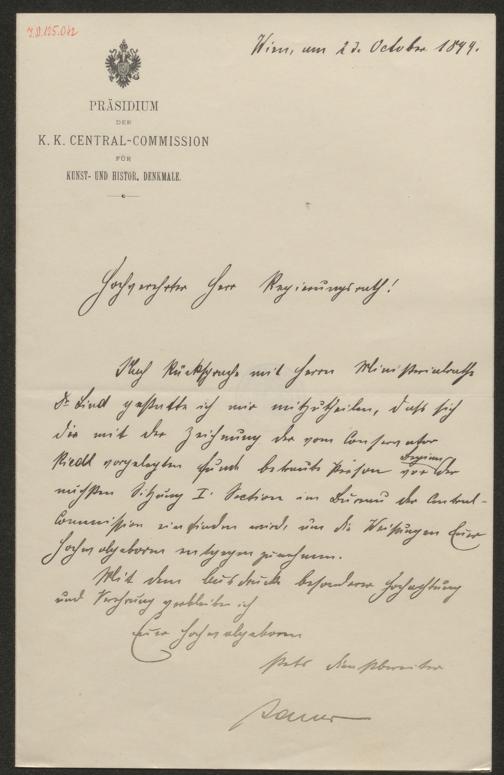 Wien, am 23. October 1899.
PRÄSIDIUM
DER
K. K. CENTRAL-COMMISSION
FÜR
KUNST- UND HISTOR. DENKMALE.
Hochverehrter Herr Regierungsrath!
Nach Rücksprache mit Herrn Ministerialrathe
Dr. Lind gestatte ich mir mitzutheilen, dass sich
die mit der Zeichnung der vom Conservator
Riedl vorgelegten Funde betraute Person vor Beginn der
nächsten Sitzung I. Section im Bureau der Central-
Commission einfinden wird, um die Weisungen Euer
Hochwolgeboren entgegenzunehmen.
Mit dem Ausdrucke besonderer Hochachtung
und Verehrung verbleibe ich
Euer Hochwolgeboren
stets dienstbereiter